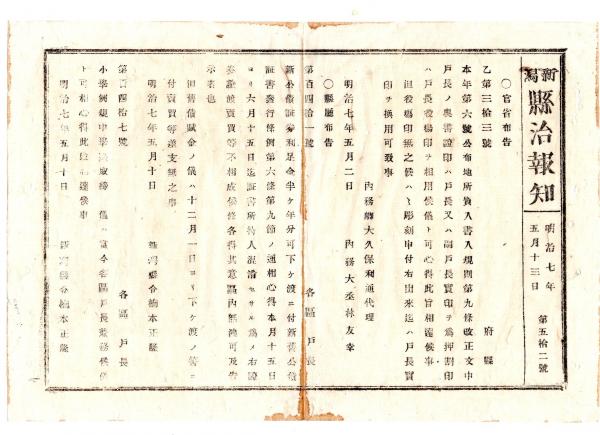 新潟
縣治報知
明治七年
五月十三日
第五拾二號
〇官省布告
乙第三拾三號
府縣
本年第六號公布地所質入書入規則第九條改正文中
戸長ノ奥書證印ハ戸長又ハ副戸長實印ヲ爲押割印
ハ戸長役場印ヲ相用候儀ト可心得此旨相達候事
但役場印無之候ハヽ彫刻申付右出來迄ハ戸長實
印ヲ換用可致事
内務卿大久保利通代理
明治七年五月二日
内務大丞林友幸
〇縣廳布告
第百四拾一號
各區
戸長
新公債證券利足金半ケ年分可下ケ渡ニ付新舊公債
証書發行條例第六條第九節ノ通相心得本月十五日
ヨリ六月十五日迄證書所持人混淆セサル爲メ右證
券讓渡賣買等不相成候條各得其意區内無洩可及告
示者也
但舊債賦金ノ儀ハ十二月一日ヨリ下ケ渡ノ筈ニ
付賣買等差支無之事
明治七年五月十日
新潟縣令楠本正隆
第百四拾七號
各區
戸長
小學
儀ハ當今各區戸長兼務候
ト可相心得此旨相達候事
明治七年五月十日
新潟縣令楠本正隆